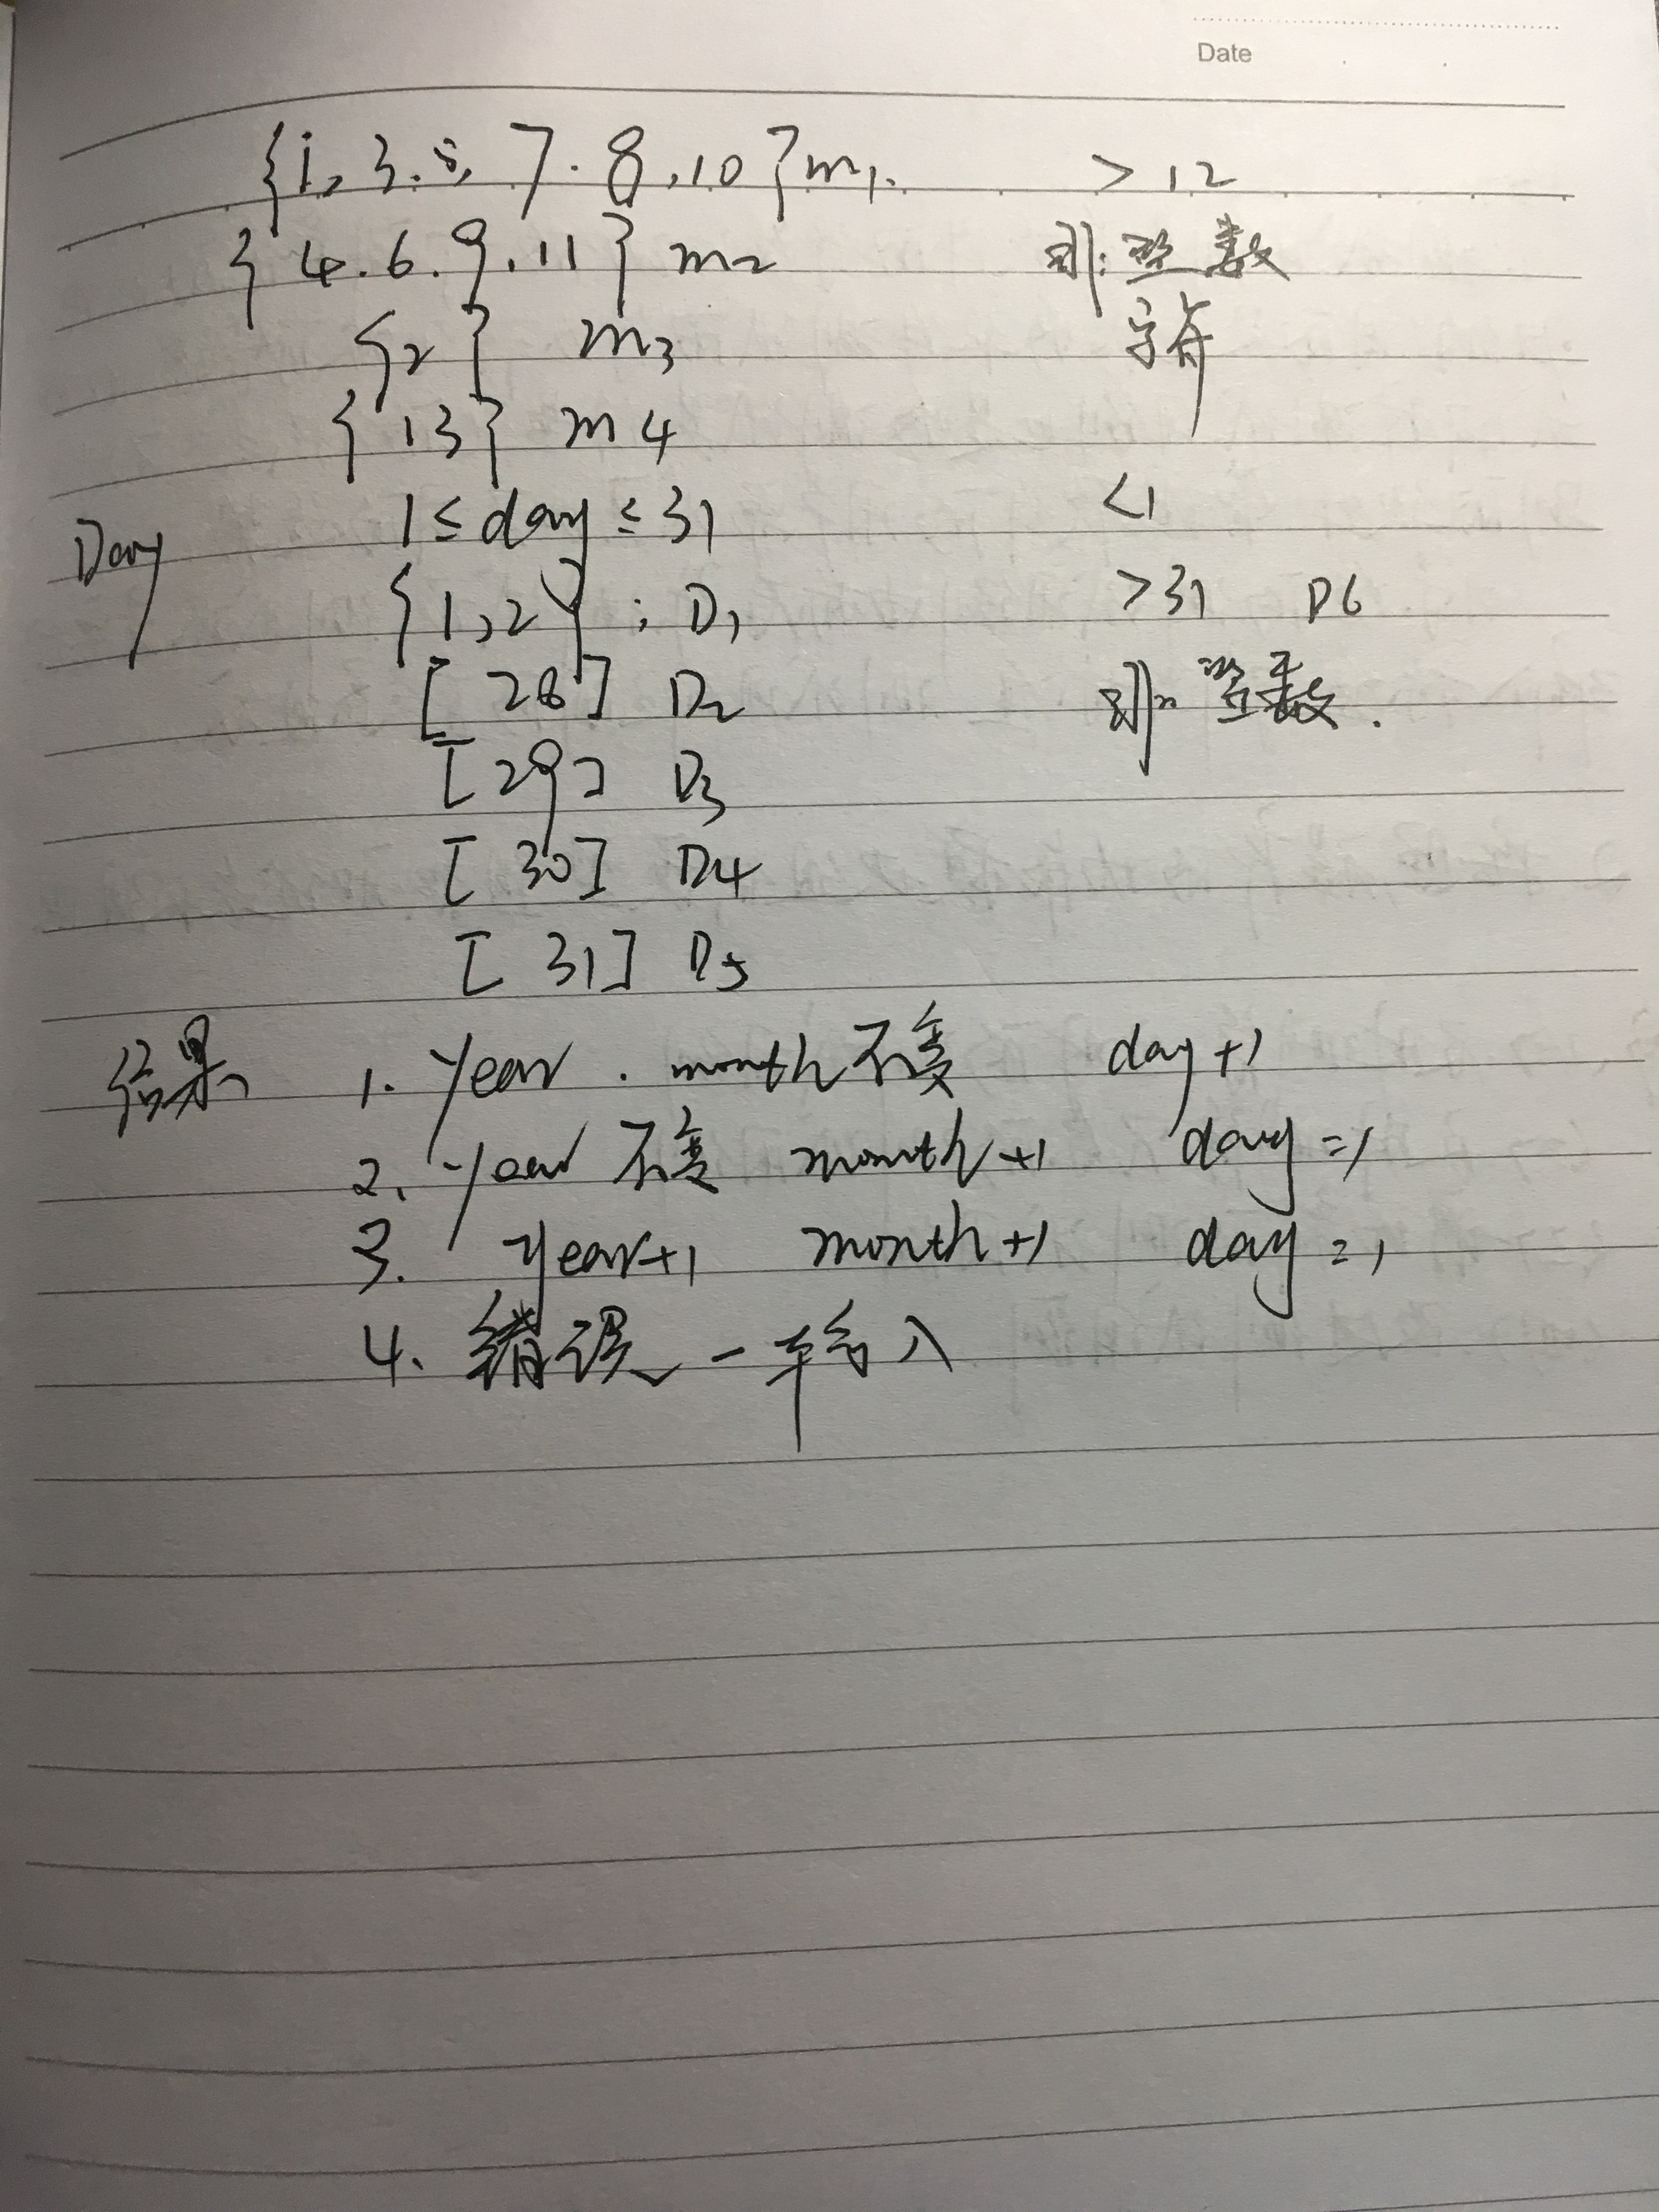 Date
{1, 3. 5, 7. 8, 10 } m1. > 12
{ 4. 6. 9. 11 } m2 非整数
{2 } m3 字符
{ 13 } m4
1 ≤ day ≤ 31 <1
Day {1, 2 } : D1 >31 D6
[ 28 ] D2 非整数.
[ 29 ] D3
[ 30 ] D4
[ 31 ] D5
结果 1. year . month 不变 day+1
2. year 不变 month+1 day=1
3. year+1 month+1 day=1
4. 错误 - 输入